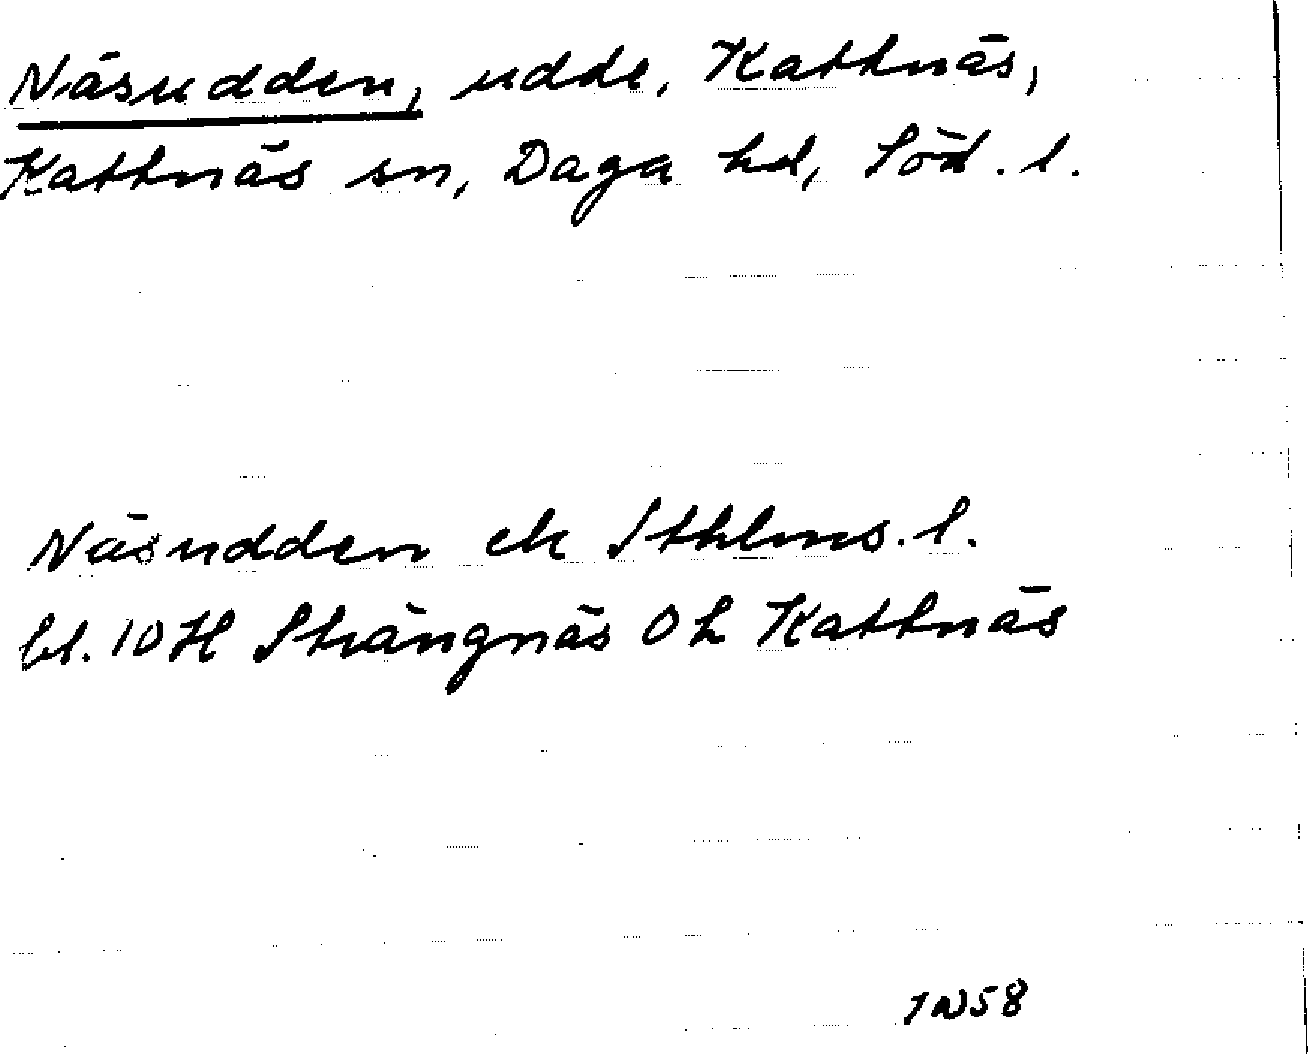 Näsudden, udde, Kattnäs,
Kattnäs sn, Daga hd, Söd. l.
Näsudden ek Sthlms. l.
bl. 10 H Strängnäs 0 h Kattnäs
1N58